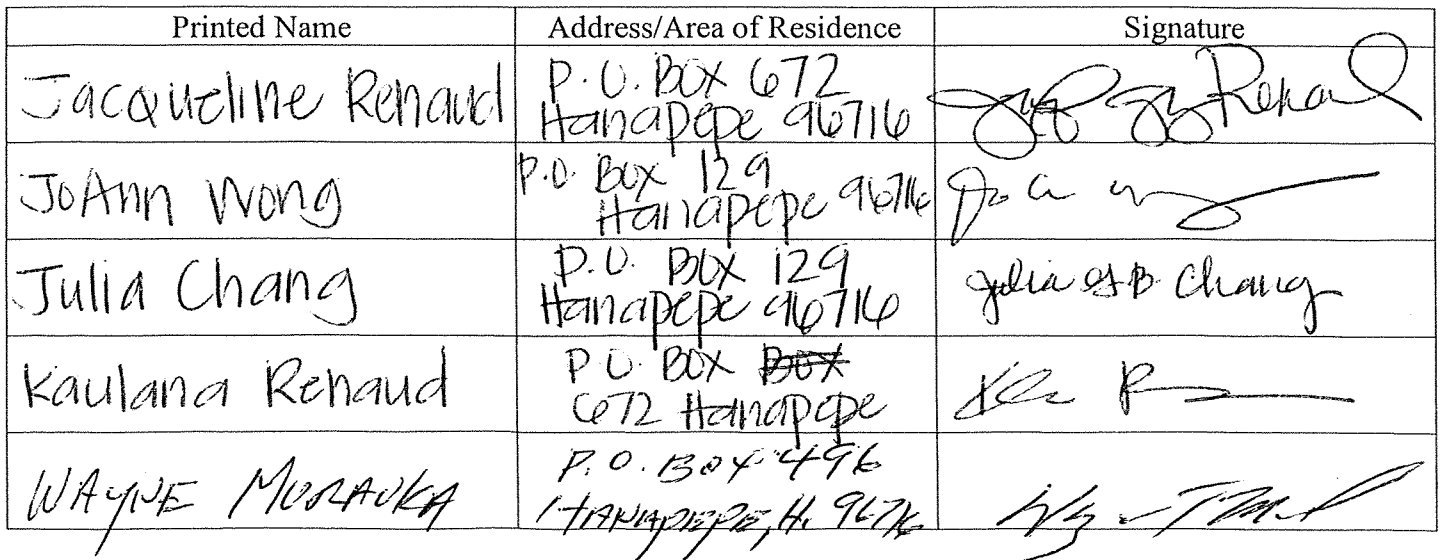 Printed Name Address/Area of Residence Signature
Jacqueline Renaud
P.O. BOX 672
Hanapepe 96716
Renaud
JoAnn Wong
P.O. BOX 129
Hanapepe 96716
Jo
Julia Chang
P.O. BOX 129
Hanapepe 96716
Julia Chang
Kaulana Renaud
P.O. BOX
672 Hanapepe
WAYNE MURAOKA
P.O. BOX 496
HANAPEPE, HI. 96716